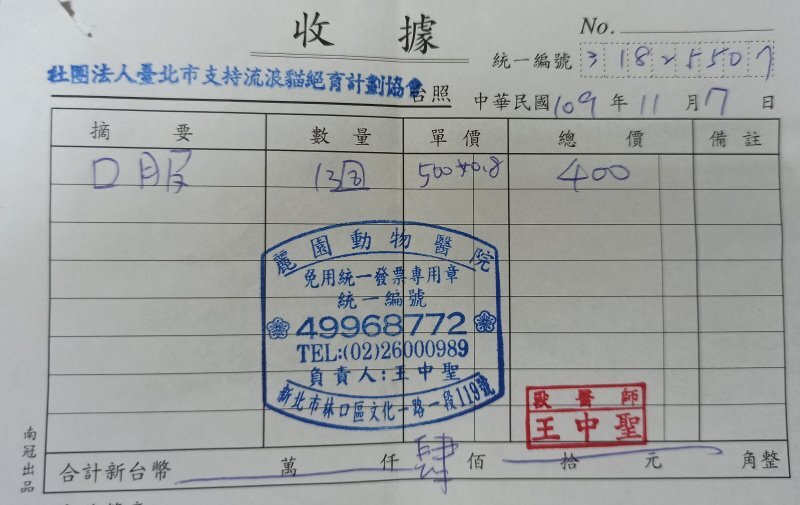 收 據
No.
統一編號 31825507
社團法人臺北市支持流浪貓絕育計劃協會 台照
中華民國 109 年 11 月 7 日
摘 要 數 量 單 價 總 價 備 註
口服 500*0.8 400
麗園動物醫院
免用統一發票專用章
統一編號
49968772
TEL:(02)26000989
負責人:王中聖
新北市林口區文化一路一段119號
獸醫師
王中聖
合計新台幣 萬 仟 肆 佰 拾 元 角整
南冠出品